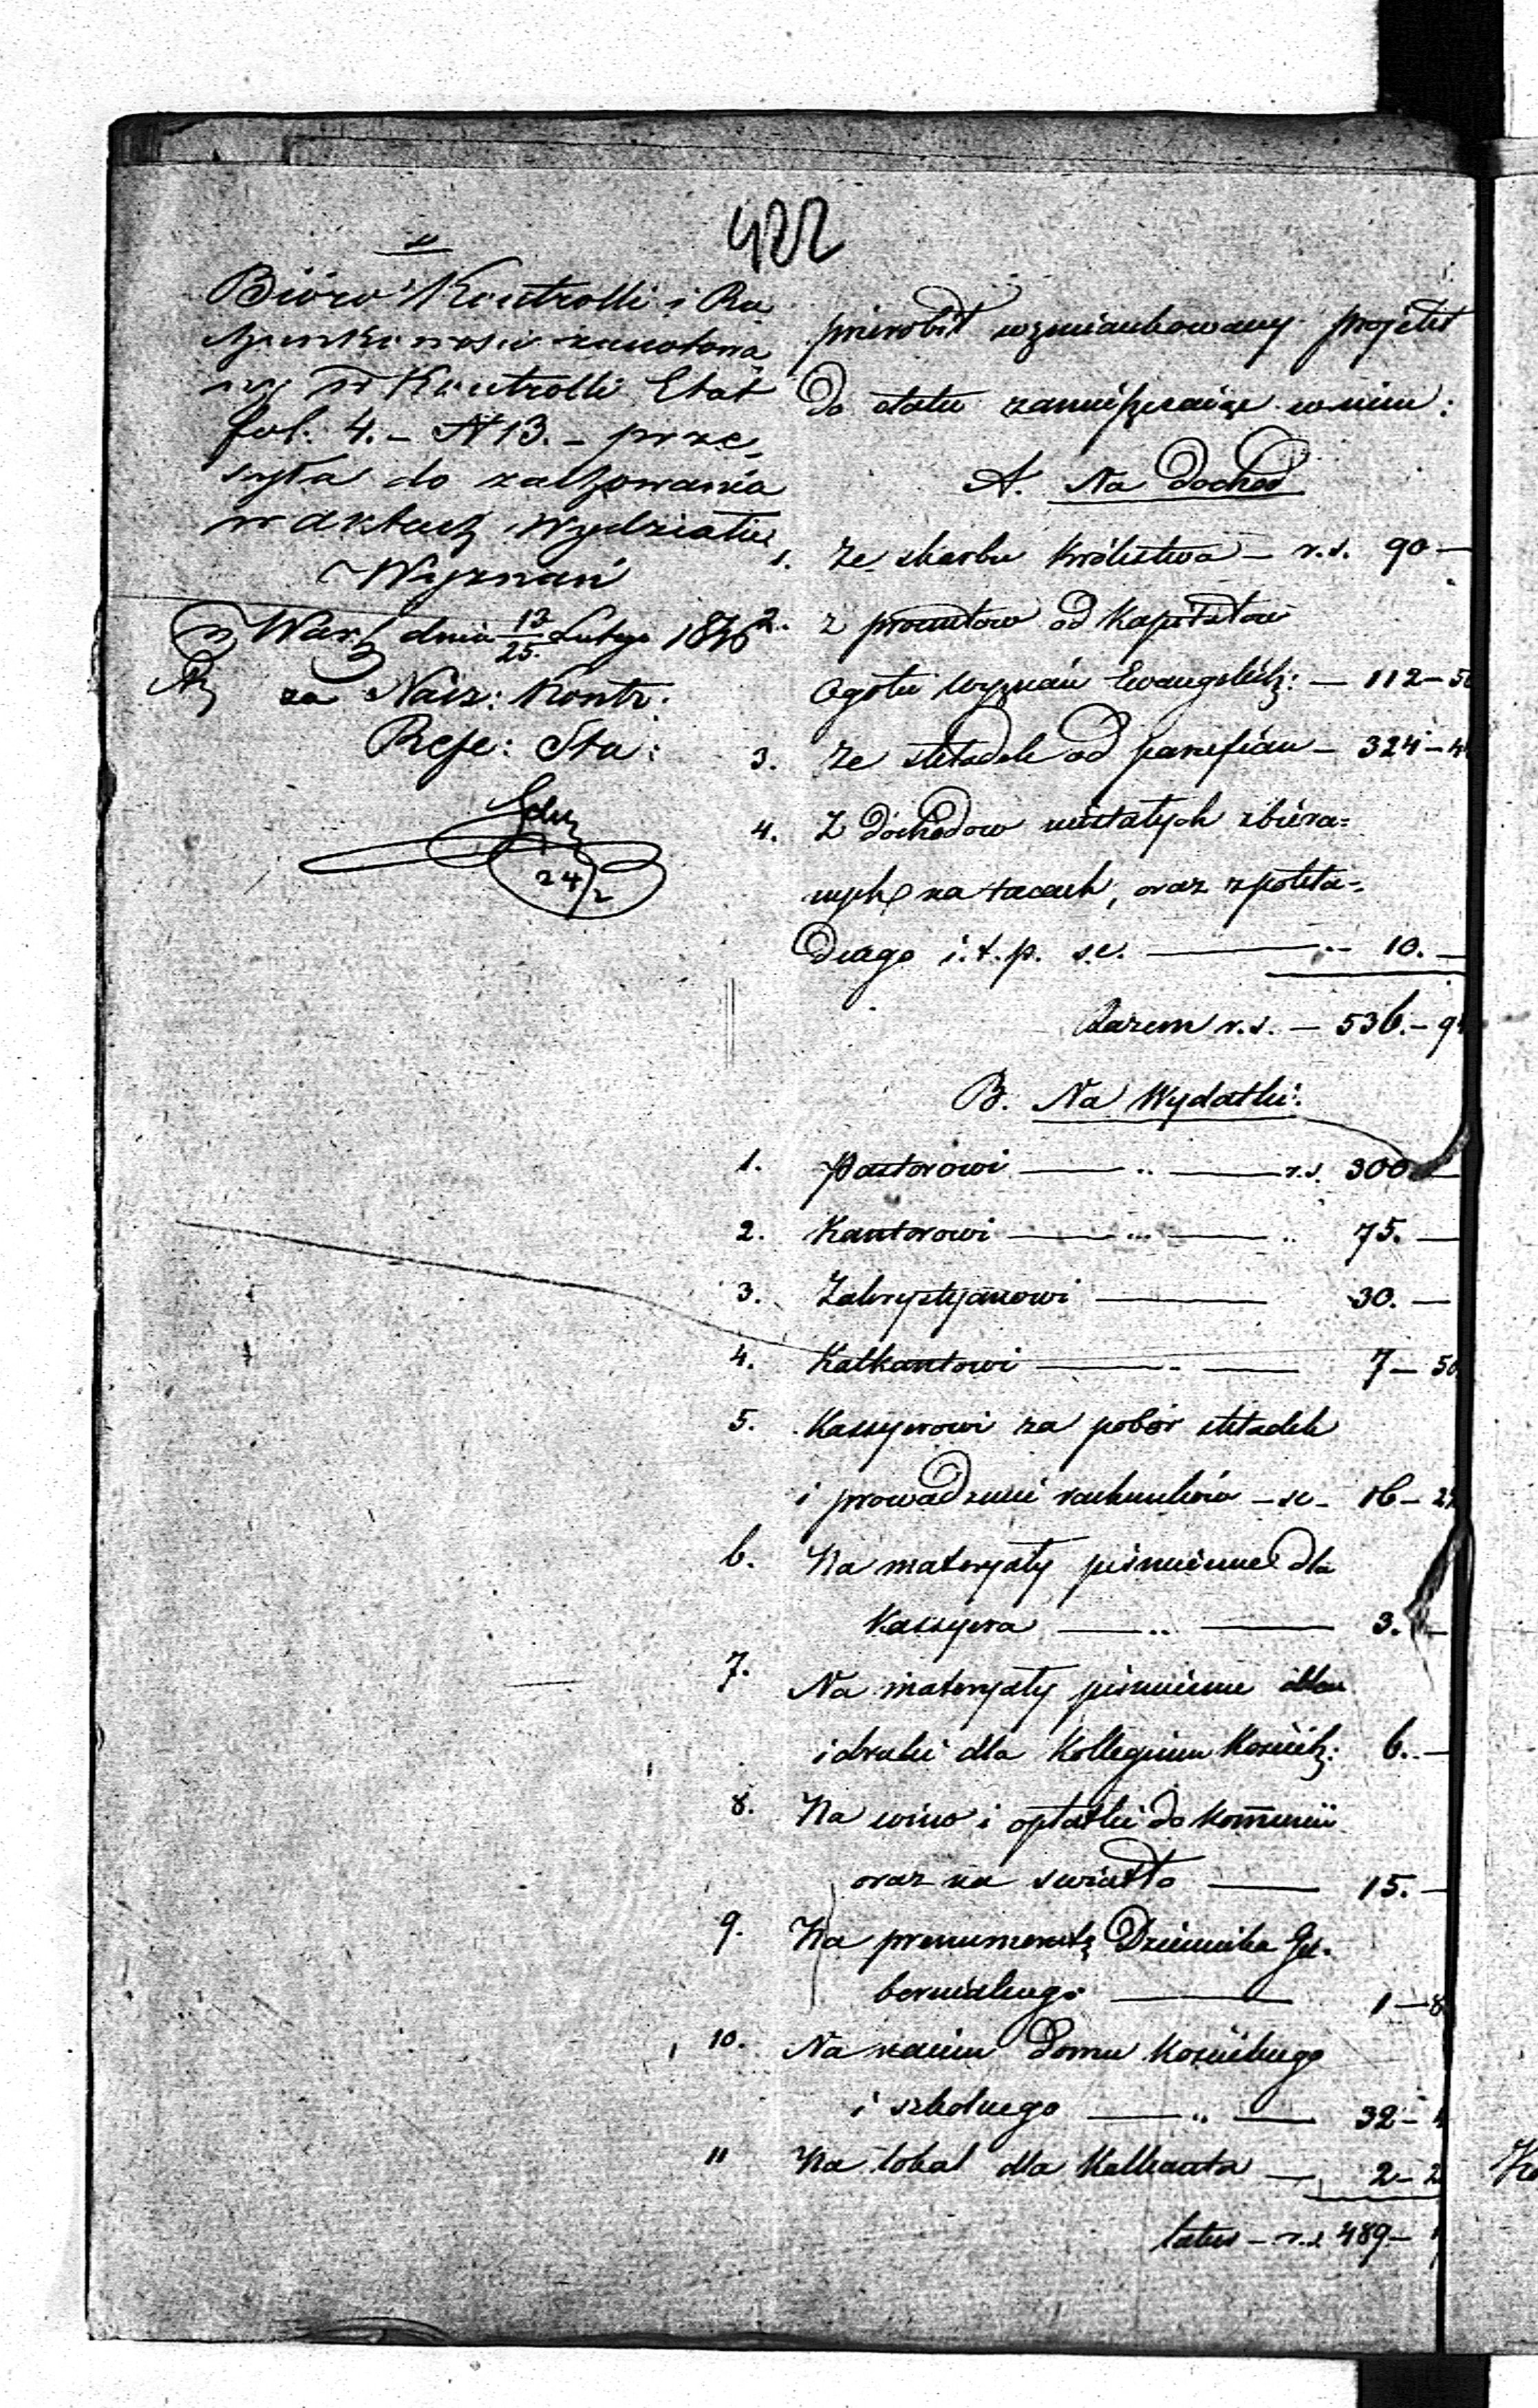 422
Bióro Kontrolli i Ra
chunkowości zanotowa
wszy w Kontrolli Etat
fol: 4. - N 13. - prze
syła do zachowania
w aktach Wydziału
Wyznań
w Warsz dnia 13/25 Lutego 1846
za Nacz: Kontr:
Refe: Sta:
24/2
przerobił wzmiankowany projekt
do etatu zamieszczając w nim:
A. Na Dochod
1. Ze skarbu Królestwa - r.s. 90 -
2. z procentow od Kapitałow
Ogółu Wyznań Ewangelick: - 112 - 50
3. Ze składek od parafian - 324 - 4
4. Z Dochodow niestałych zbiera=
nych na tacach, oraz z pokła=
dnego i.t.p. s.c. - 10. -
Razem r.s. - 536. - 9
B. Na Wydatki.
1. Pastorowi - r.s. 300 -
2. Kantorowi - 75. -
3. Zakrystyanowi - 30. -
4. Kalkantowi - 7 - 50
5. Kassyerowi za pobór składek
i prowadzenie rachunków - sc - 16 - 2
6. Na materyały piśmienne dla
Kassyera - 3. -
7. Na materyały piśmienne dla
i druki dla Kollegium Kościel: 6. -
8. Na wino i opłatki do Kom̄unii
oraz na swiatło - 15. -
9. Na prenumeratę Dziennika Gu-
bernialnego - 1 - 8
10. Na najem Domu Kościelnego
i szkolnego - 32 -
11 Na lokal dla Kalkanta - 2 - 2
latus - r.s 489 -